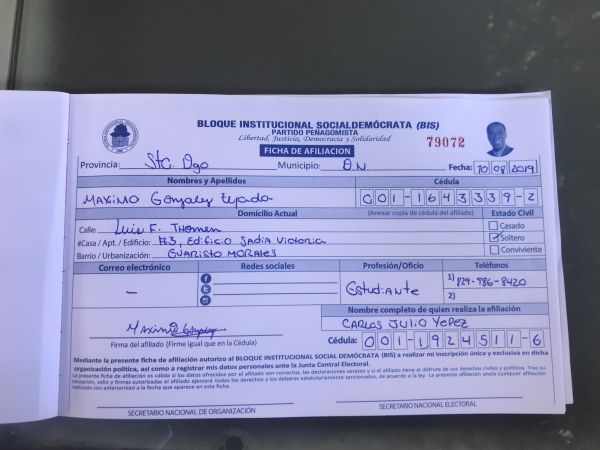 BLOQUE INSTITUCIONAL SOCIALDEMÓCRATA (BIS)
PARTIDO PEÑAGOMISTA
Libertad, Justicia, Democracia y Solidaridad
79072
FICHA DE AFILIACION
Provincia: Stc. Dgo Municipio: D.N. Fecha: 10 08 2019
Nombres y Apellidos Cédula
MAXIMO Gonzalez Tejada 001-1643339-2
Domicilio Actual (Anexar copia de cédula del afiliado) Estado Civil
Calle: Luis F. Thomen Casado
#Casa / Apt. / Edificio: #3, Edificio Sadia Victoria Soltero
Barrio / Urbanización: EVARISTO MORALES Conviviente
Correo electrónico Redes sociales Profesión/Oficio Teléfonos
– Estudiante 1) 829-986-8420
2)
Nombre completo de quien realiza la afiliación
MAXIMO Gonzalez CARLOS JULIO YEPEZ
Firma del afiliado (Firme igual que en la Cédula) Cédula: 001-1924511-6
Mediante la presente ficha de afiliación autorizo al BLOQUE INSTITUCIONAL SOCIAL DEMÓCRATA (BIS) a realizar mi inscripción única y exclusiva en dicha
organización política, así como a registrar mis datos personales ante la Junta Central Electoral.
La presente ficha de afiliación es válida si los datos del afiliado son correctos, las declaraciones veraces y si el afiliado tiene el disfrute de sus derechos civiles y políticos. Tras su
afiliado ejercerá todos los derechos y los deberes estatutariamente sancionados, de acuerdo a la ley. La presente afiliación anula cualquier afiliación
realizada con anterioridad a la fecha que aparece en esta ficha.
SECRETARIO NACIONAL DE ORGANIZACIÓN SECRETARIO NACIONAL ELECTORAL